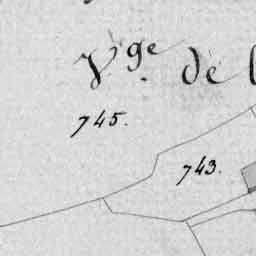 Vge. de
745.
743.